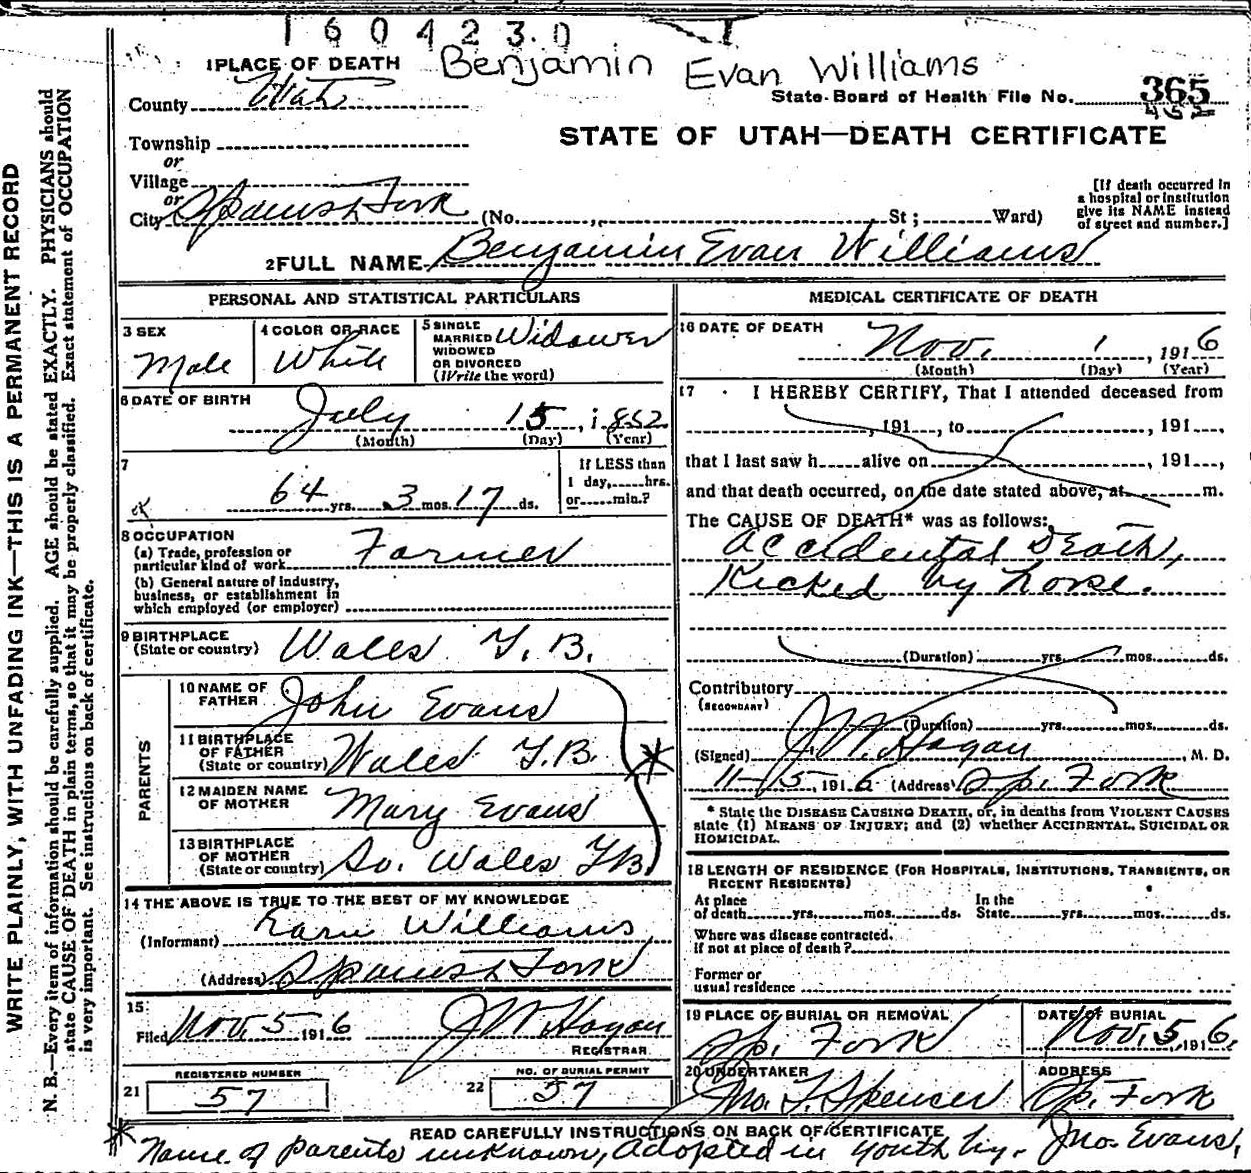 160423.0
Benjamin Evan Williams
1 PLACE OF DEATH
County Utah
State Board of Health File No. 365
STATE OF UTAH—DEATH CERTIFICATE
Township
or
Village
or
City Spanish Fork (No. , St; Ward)
[If death occurred in
a hospital or institution
give its NAME instead
of street and number.]
2 FULL NAME Benjamin Evan Williams
PERSONAL AND STATISTICAL PARTICULARS
3 SEX
Male
4 COLOR OR RACE
White
5 SINGLE
MARRIED
WIDOWED
OR DIVORCED
(Write the word)
Widower
6 DATE OF BIRTH
July 15, 1852
(Month) (Day) (Year)
7
64 yrs. 3 mos. 17 ds.
If LESS than
1 day, hrs.
or min.?
8 OCCUPATION
(a) Trade, profession or
particular kind of work Farmer
(b) General nature of industry,
business, or establishment in
which employed (or employer)
9 BIRTHPLACE
(State or country) Wales G.B.
PARENTS
10 NAME OF
FATHER John Evans
11 BIRTHPLACE
OF FATHER
(State or country) Wales G.B.
12 MAIDEN NAME
OF MOTHER Mary Evans
13 BIRTHPLACE
OF MOTHER
(State or country) So. Wales G.B.
*
14 THE ABOVE IS TRUE TO THE BEST OF MY KNOWLEDGE
(Informant) Williams
(Address) Spanish Fork
15
Filed Nov. 5 1916 J.W. Hagan
REGISTRAR
REGISTERED NUMBER
21 57
NO. OF BURIAL PERMIT
22 57
MEDICAL CERTIFICATE OF DEATH
16 DATE OF DEATH
Nov. 1, 1916
(Month) (Day) (Year)
17 I HEREBY CERTIFY, That I attended deceased from
, 191 , to , 191 ,
that I last saw h alive on , 191 ,
and that death occurred, on the date stated above, at m.
The CAUSE OF DEATH* was as follows:
Accidental Death,
Kicked by horse.
(Duration) yrs. mos. ds.
Contributory
(SECONDARY)
(Duration) yrs. mos. ds.
(Signed) J.W. Hagan, M. D.
11-5, 1916 (Address) Sp. Fork
* State the DISEASE CAUSING DEATH, or, in deaths from VIOLENT CAUSES
state (1) MEANS OF INJURY; and (2) whether ACCIDENTAL, SUICIDAL OR
HOMICIDAL.
18 LENGTH OF RESIDENCE (FOR HOSPITALS, INSTITUTIONS, TRANSIENTS, OR
RECENT RESIDENTS)
At place
of death yrs. mos. ds.
In the
State yrs. mos. ds.
Where was disease contracted.
if not at place of death?
Former or
usual residence
19 PLACE OF BURIAL OR REMOVAL
Sp. Fork
DATE OF BURIAL
Nov. 5, 1916.
20 UNDERTAKER
Jno. F. Spencer
ADDRESS
Sp. Fork
READ CAREFULLY INSTRUCTIONS ON BACK OF CERTIFICATE
* Name of parents unknown, adopted in youth by. Jno. Evans,
WRITE PLAINLY, WITH UNFADING INK—THIS IS A PERMANENT RECORD
N. B.—Every item of information should be carefully supplied. AGE should be stated EXACTLY. PHYSICIANS should
state CAUSE OF DEATH in plain terms, so that it may be properly classified. Exact statement of OCCUPATION
is very important. See instructions on back of certificate.